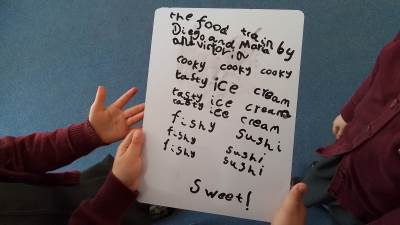 the food train by
Diego and Maria
and victoria
cooky cooky cooky
tasty ice cream
tasty ice cream
tasty ice cream
fishy sushi
fishy sushi
fishy sushi
Sweet!